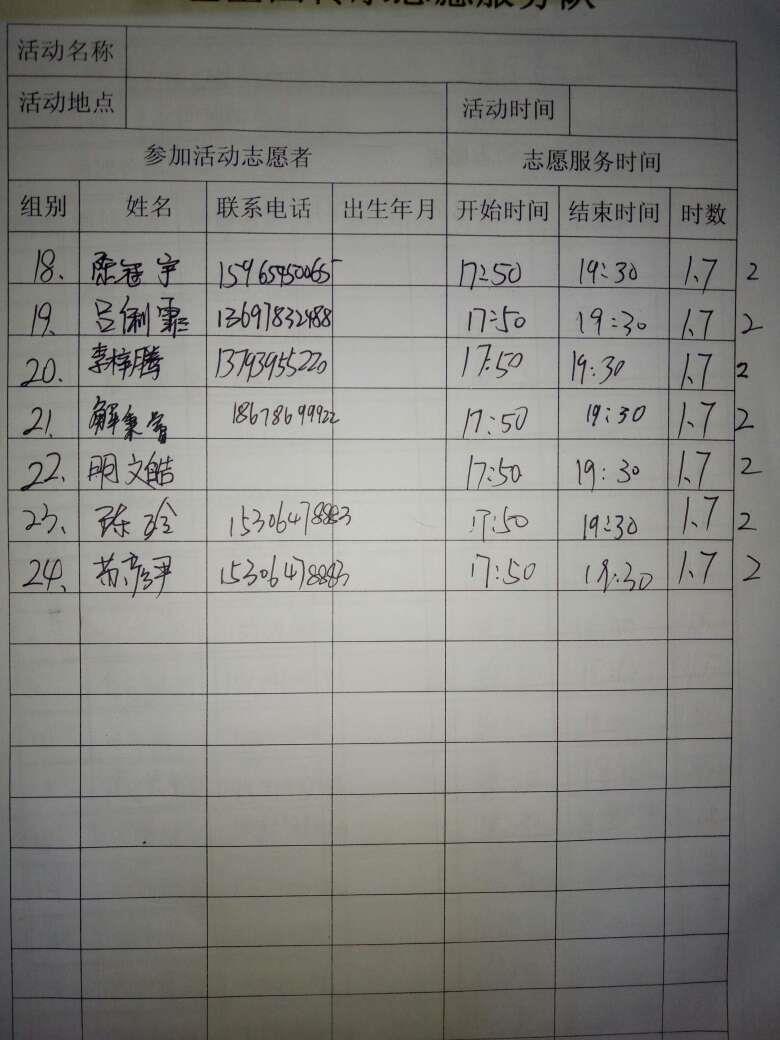 志愿服务队
活动名称
活动地点 活动时间
参加活动志愿者 志愿服务时间
组别 姓名 联系电话 出生年月 开始时间 结束时间 时数
18、 陈冠宇 15965450065 17:50 19:30 1.7 2
19、 吕俐霏 13697832488 17:50 19:30 1.7 2
20、 李梓腾 13793955220 17:50 19:30 1.7 2
21、 解 18678699922 17:50 19:30 1.7 2
22、 明文皓 17:50 19:30 1.7 2
23、 陈玲 15306478883 17:50 19:30 1.7 2
24、 苏彦尹 15306478883 17:50 19:30 1.7 2